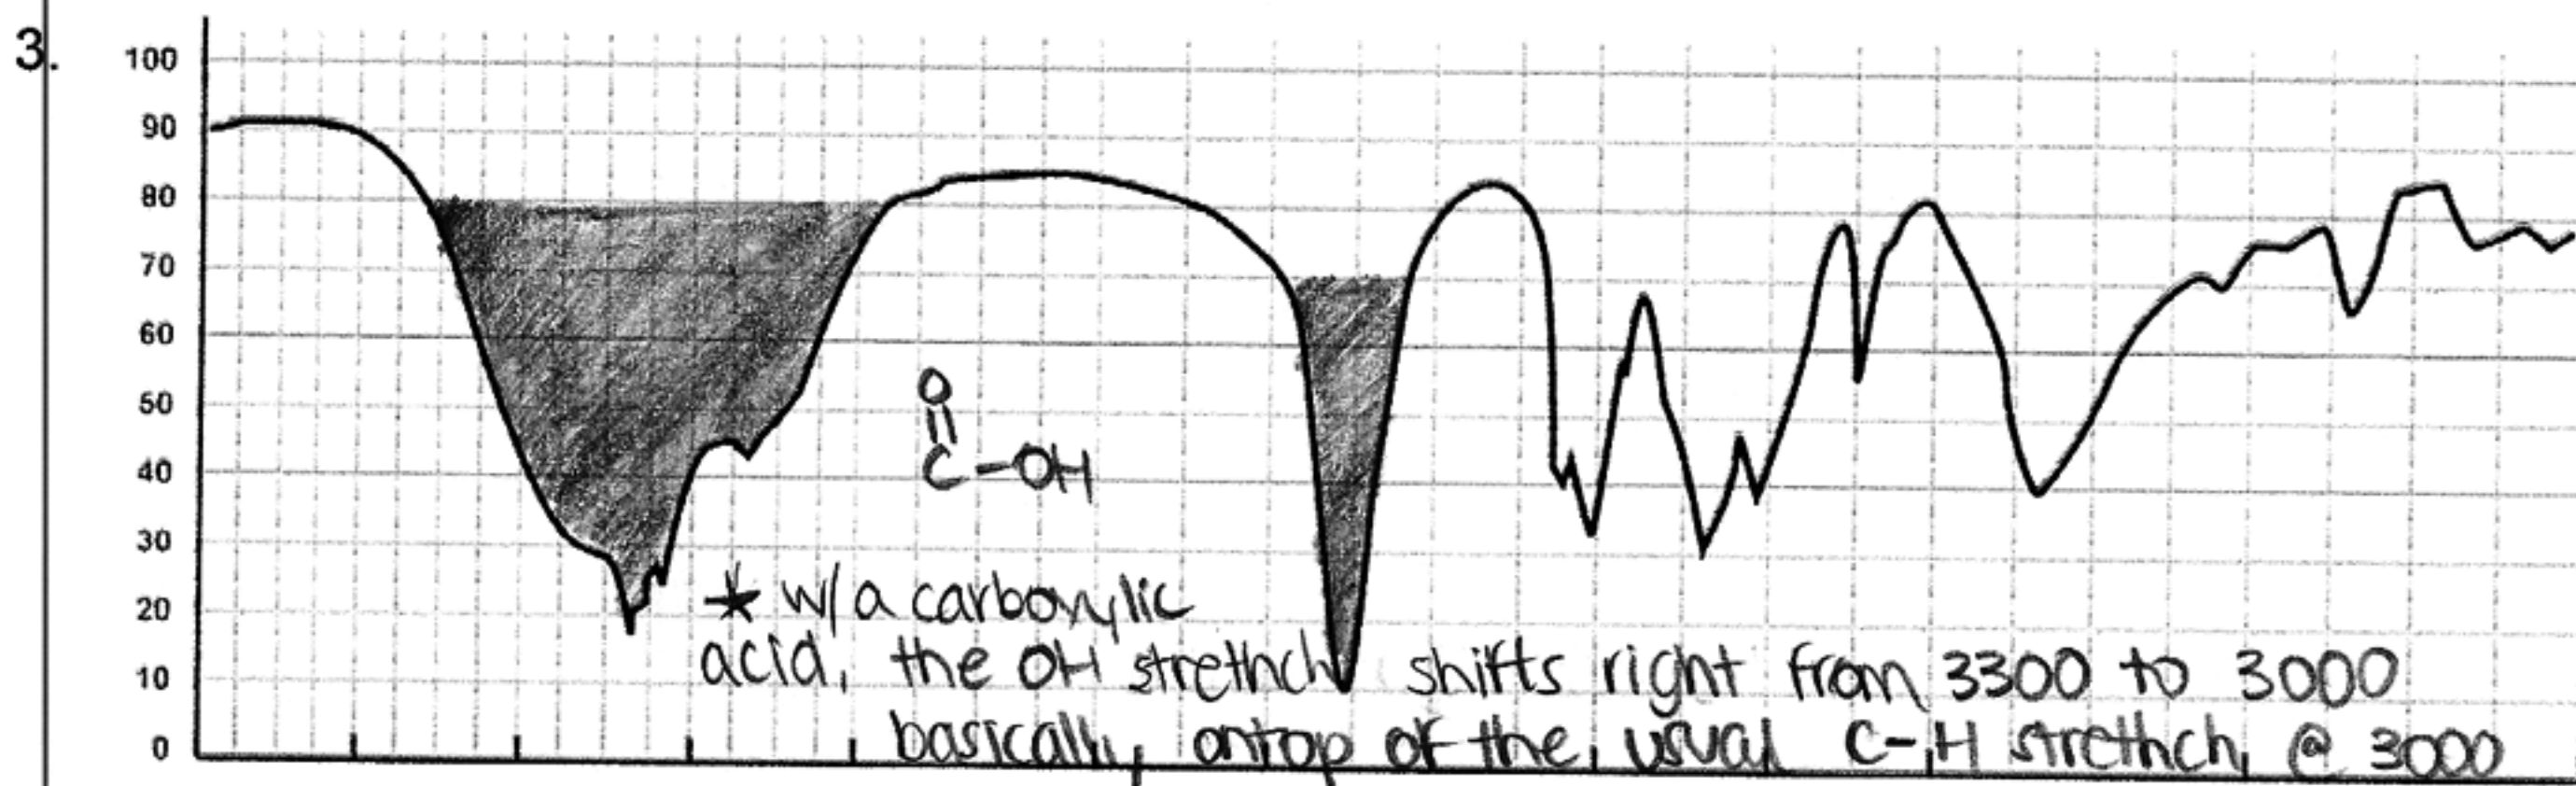 3.
100
90
80
70
60
50
40
30
20
10
0
O
C-OH
* w/a carboxylic
acid, the OH strethch shifts right from 3300 to 3000
basically ontop of the usual C-H strethch @ 3000